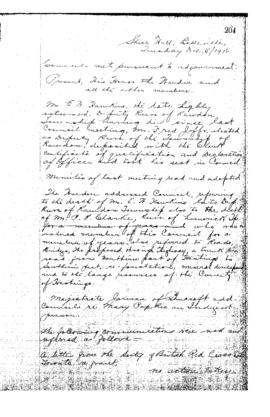 204
Shire Hall, Belleville,
Tuesday Dec. 5/1916
Council met pursuant to adjournment.
Present, His Honor the Warden and
all the other members.
Mr. E. W. Hawkins, the late highly
esteemed, Deputy Reeve of Rawdon
Township having died since last
Council meeting, Mr. Fred Jeffs, elected
as Deputy Reeve of the Township of
Rawdon, deposited with the Clerk
Certificate of Qualification and Declaration
of Office and took his seat in Council
Minutes of last meeting read and adopted
The Warden addressed Council, referring
to the death of Mr. E. W. Hawkins, late Deputy
Reeve of Rawdon Township also to the death
of Mr. Clarke, Reeve of
for a number of years and who was a
valued member of this Council for a
number of years, also referred to Roads
Bridges, the proposed through Highway, a trunk
road from Northern part of Hastings to
Southern part, re-forestation, mineral
and to the large resources of the County
of Hastings.
Magistrate Jarman of Bancroft add.
Council re Mary an Indigent
person.
The following communications were read and
referred as follows —
A letter from the Society of British Red Cross
Toronto re grant,
no action taken